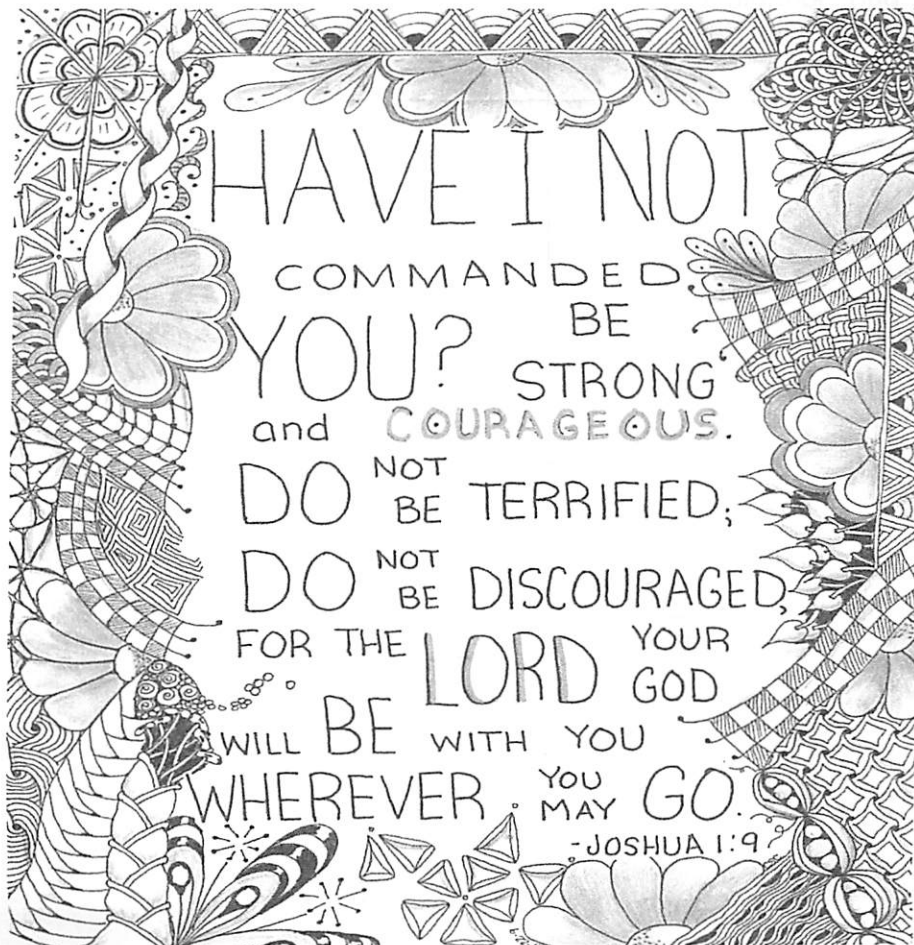 HAVE I NOT
COMMANDED
YOU? BE
STRONG
and COURAGEOUS.
DO NOT BE TERRIFIED;
DO NOT BE DISCOURAGED,
FOR THE LORD YOUR GOD
WILL BE WITH YOU
WHEREVER YOU MAY GO.
-JOSHUA 1:9